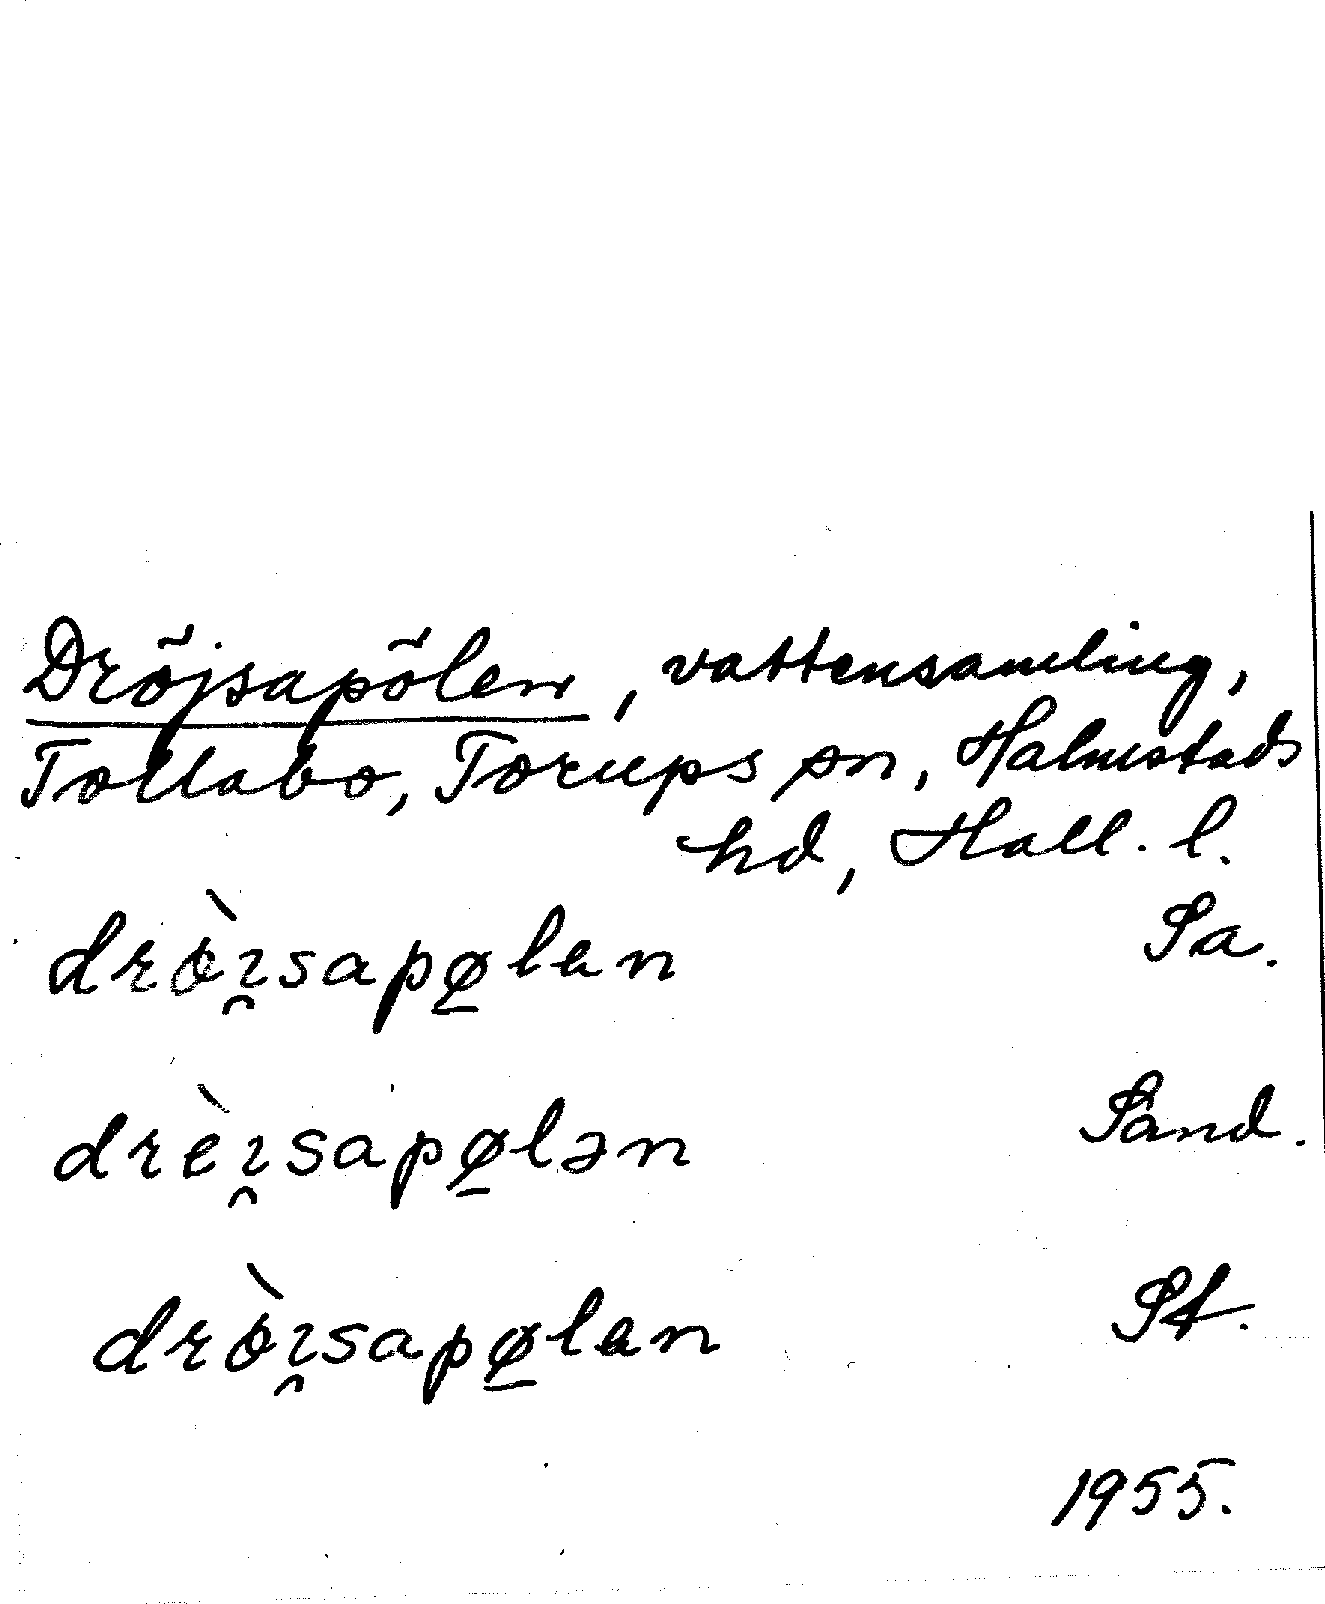 Dröjsapölen, vattensamling,
Tollabo, Torups sn, Halmstads
hd, Hall. l.
drö̀ı̯sapø̱lɐn Sa.
drèı̯sapø̱lən Sand.
drö̀ı̯sapø̱lɐn St.
1955.